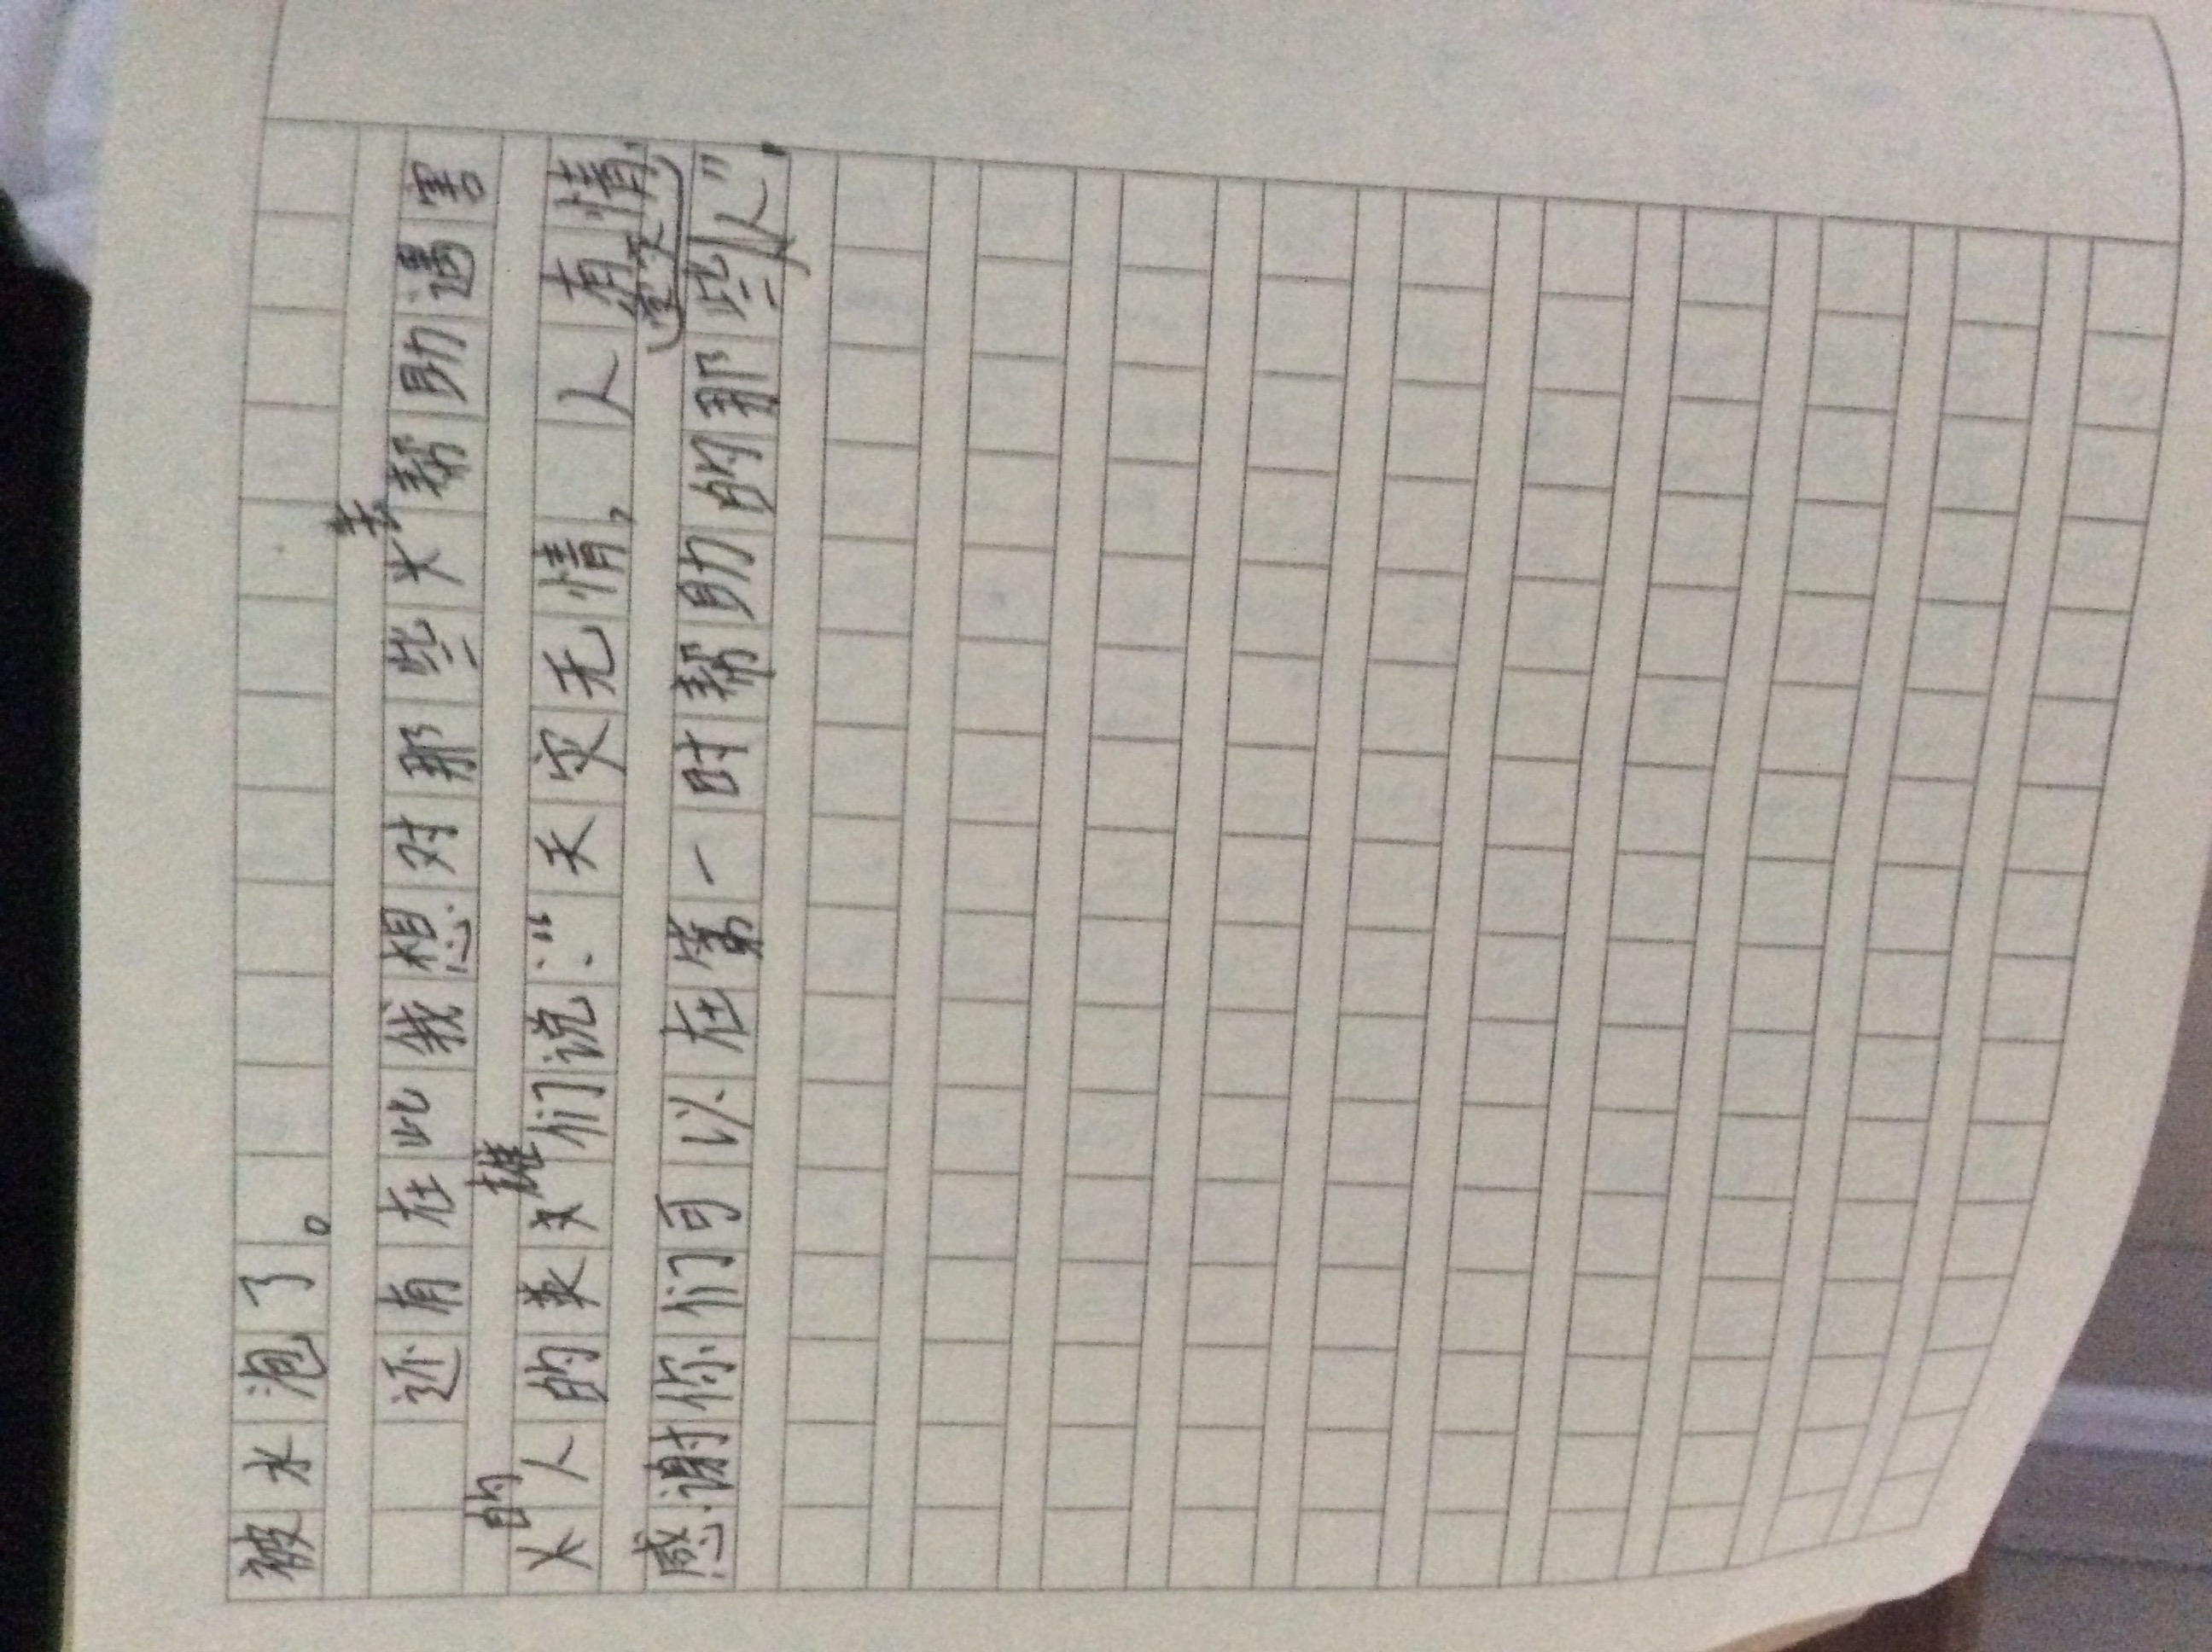 被水泡了。
还有在此我想对那些去帮助遇害
的人的英雄们说：“天灾无情，人有情，
感谢你们可以在第一时帮助的那些人”.